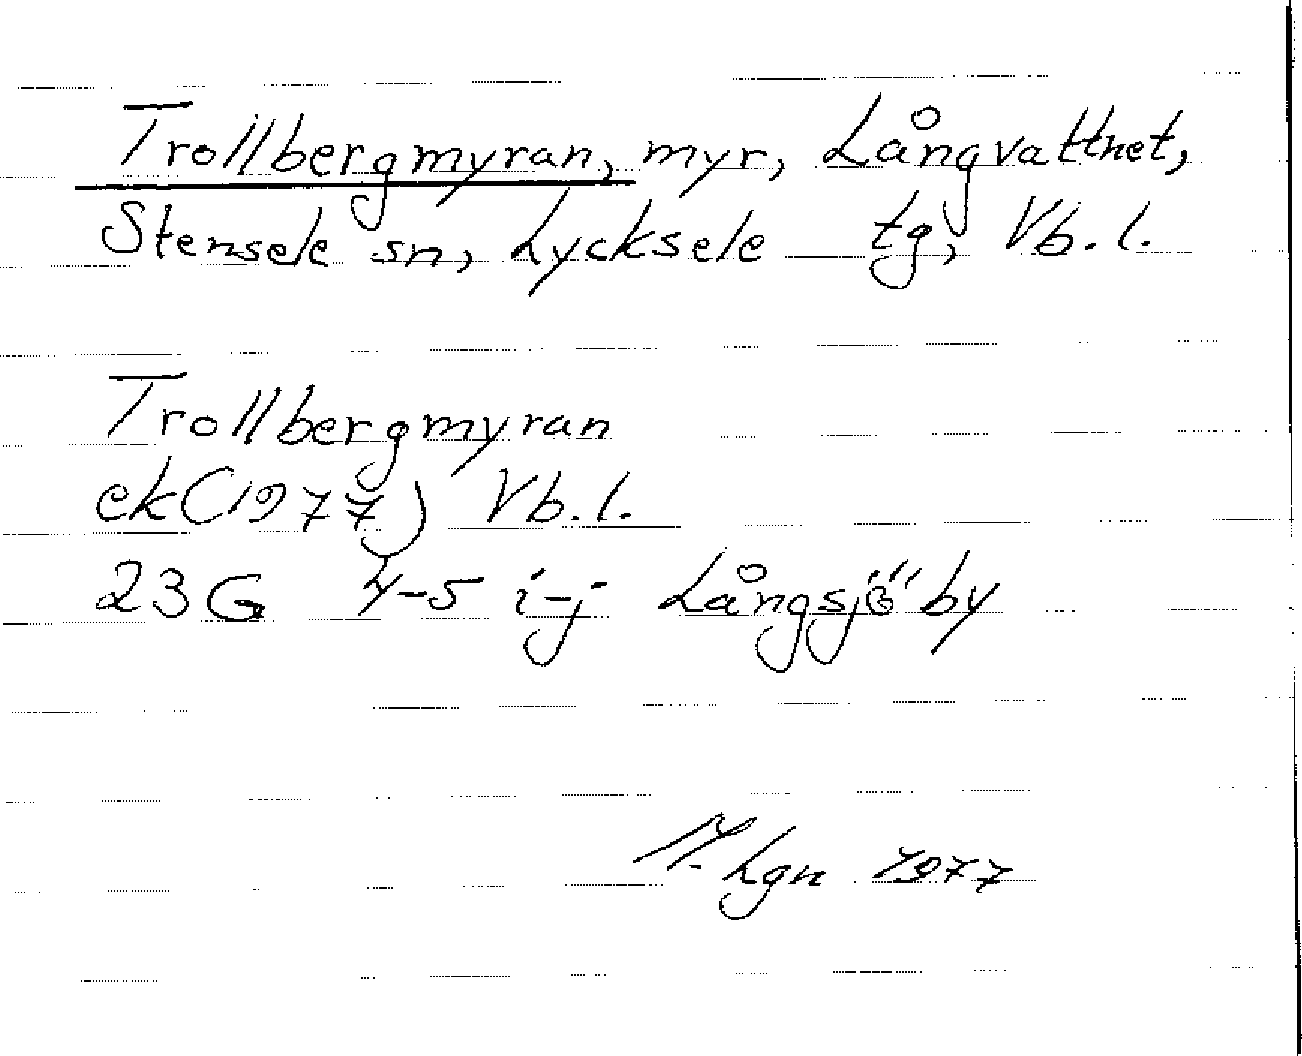 Trollbergmyran, myr, Långvattnet,
Stensele sn, Lycksele tg, Vb. l.
Trollbergmyran
ek (1977) Vb. l.
23 G 4-5 i-j Långsjöby
M. Lgn 1977